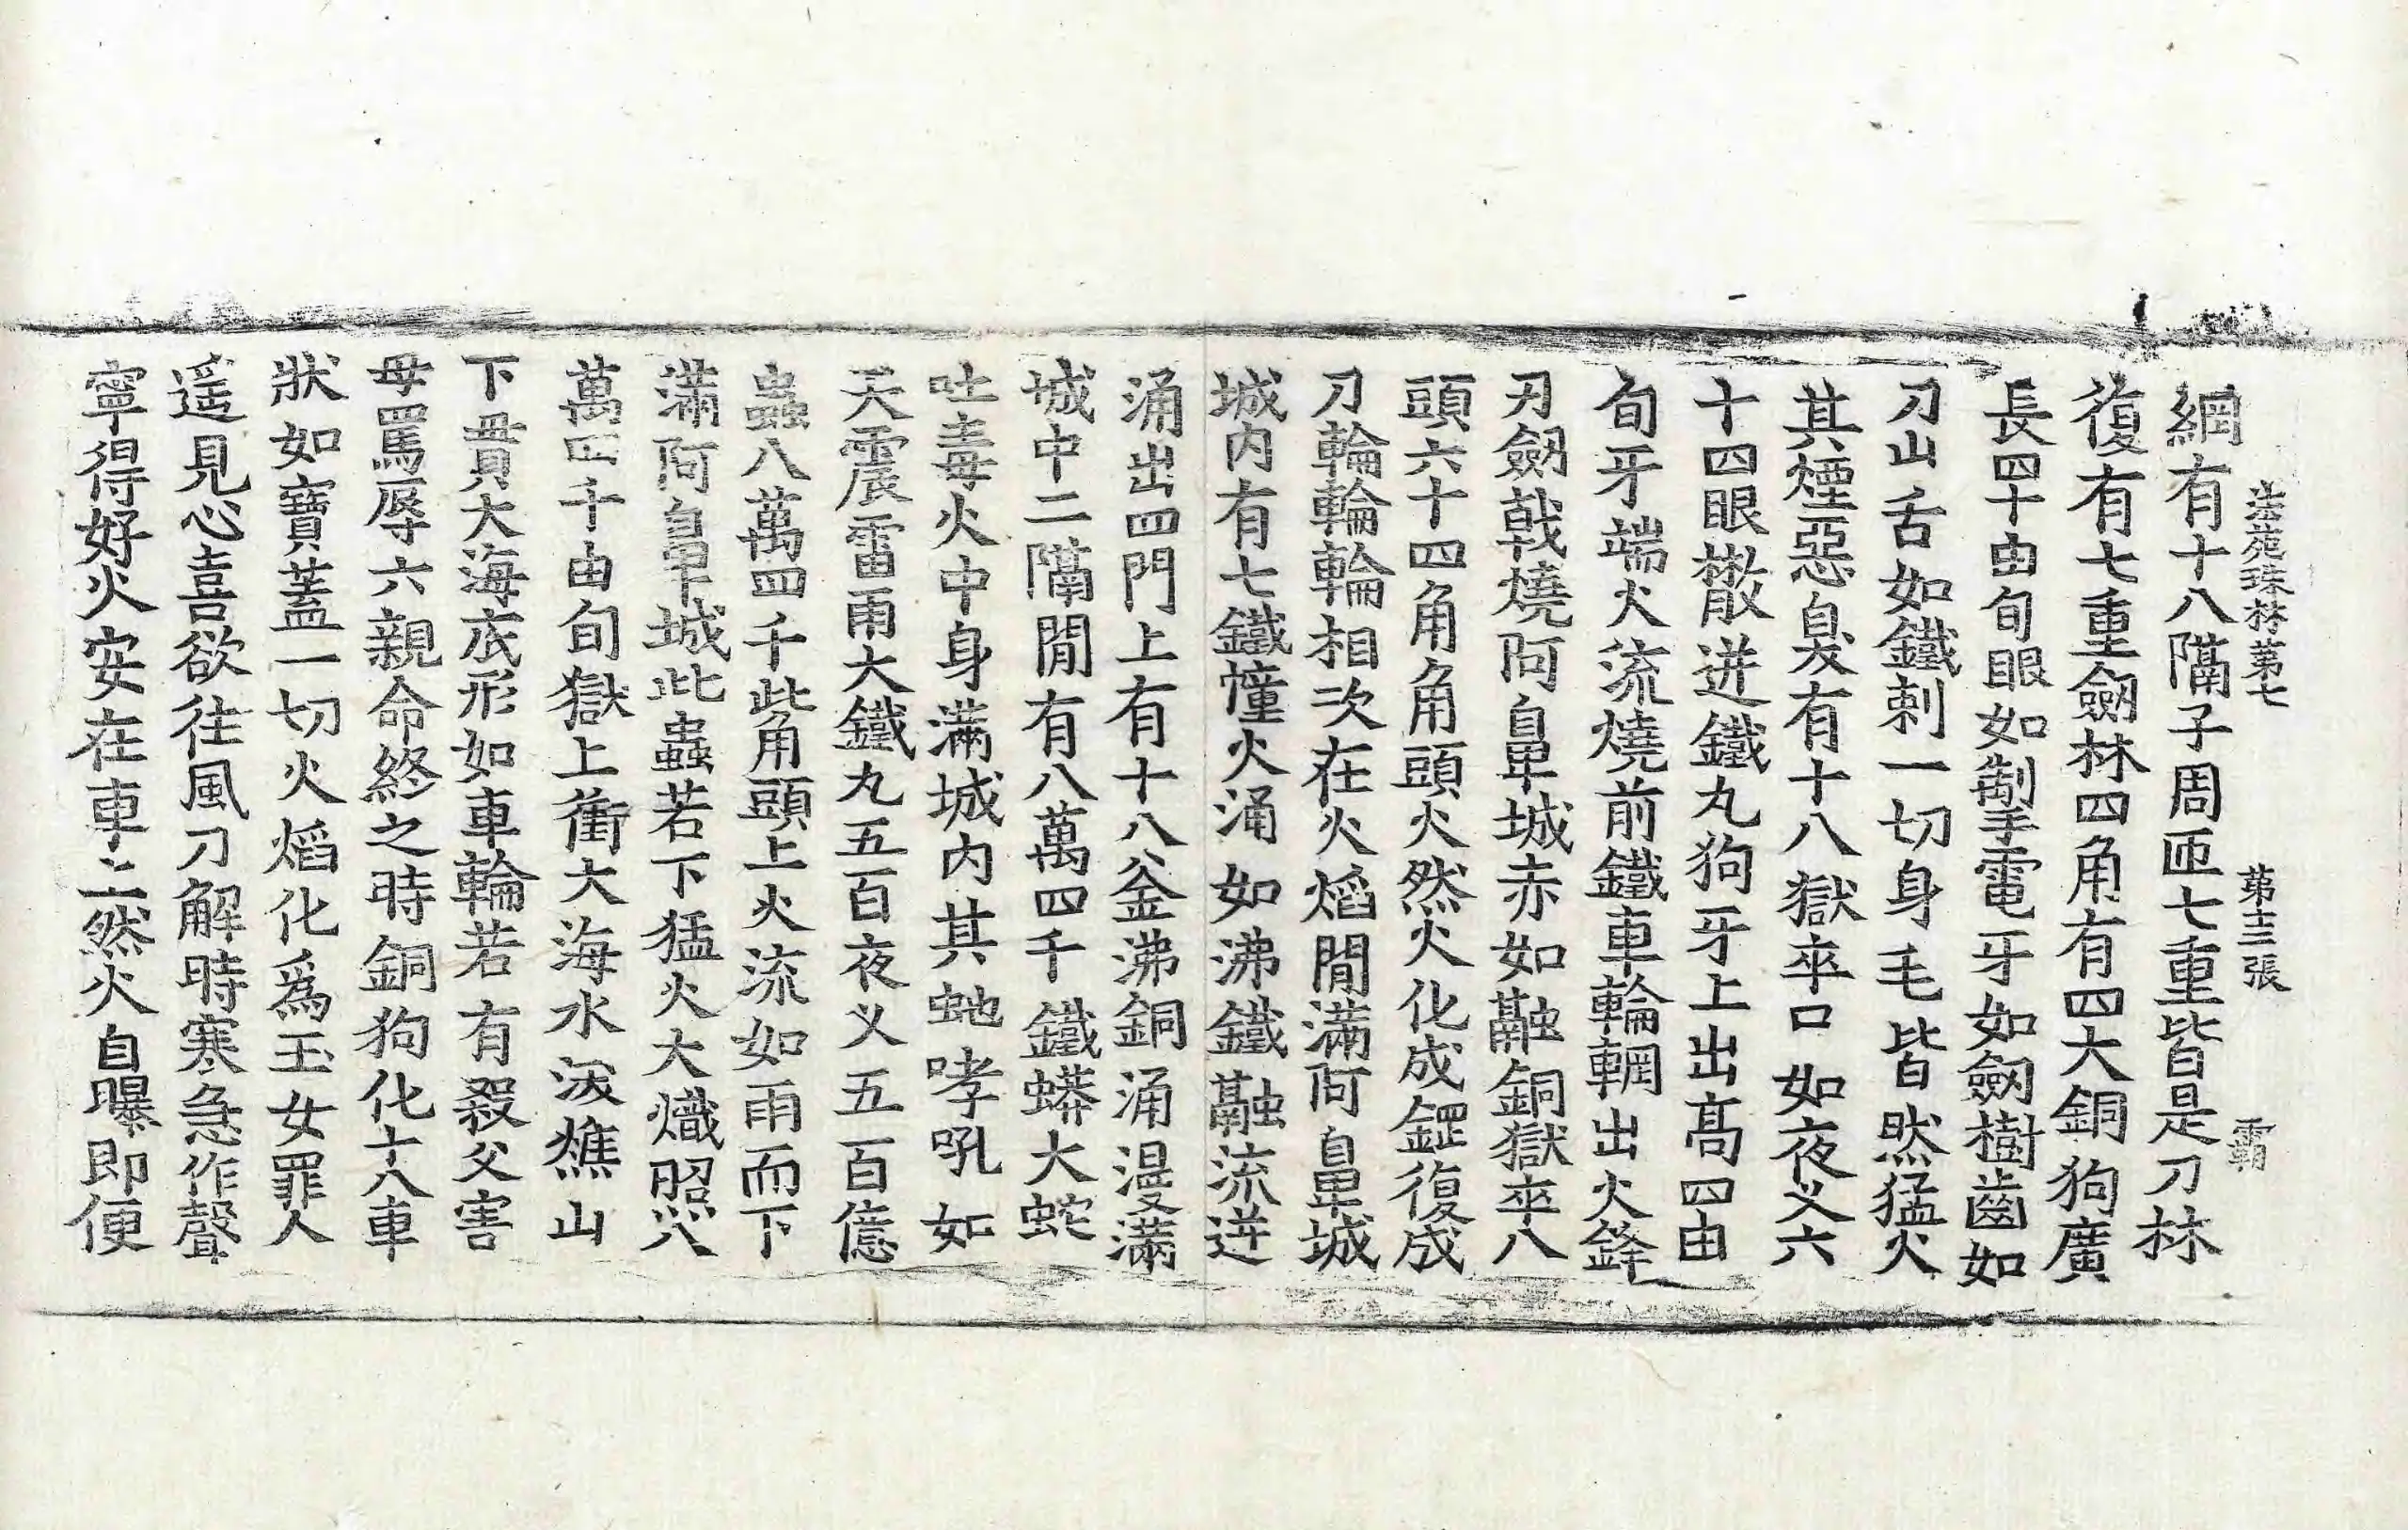 法苑珠林第七　第十三張　霸
網有十八隔子周匝七重皆是刀林
復有七重劒林四角有四大銅狗廣
長四十由旬眼如掣電牙如劒樹齒如
刀山舌如鐵刺一切身毛皆然猛火
其煙惡臭有十八獄卒口如夜叉六
十四眼散迸鐵丸狗牙上出高四由
旬牙端火流燒前鐵車輪輞出火鋒
刃劒戟燒阿鼻城赤如融銅獄卒八
頭六十四角角頭火然火化成鋼復成
刀輪輪輪相次在火焰閒滿阿鼻城
城内有七鐵幢火涌如沸鐵融流迸
涌出四門上有十八釜沸銅涌漫滿
城中二隔閒有八萬四千鐵蟒大蛇
吐毒火中身滿城内其虵哮吼如
天震雷雨大鐵丸五百夜叉五百億
蟲八萬四千此角頭上火流如雨而下
滿阿鼻城此蟲若下猛火大熾照八
萬四千由旬獄上衝大海水沃燋山
下貫大海底形如車輪若有殺父害
母罵辱六親命終之時銅狗化十八車
狀如寶蓋一切火焰化爲玉女罪人
遥見心喜欲往風刀解時寒急作聲
寧得好火安在車上然火自曝即便